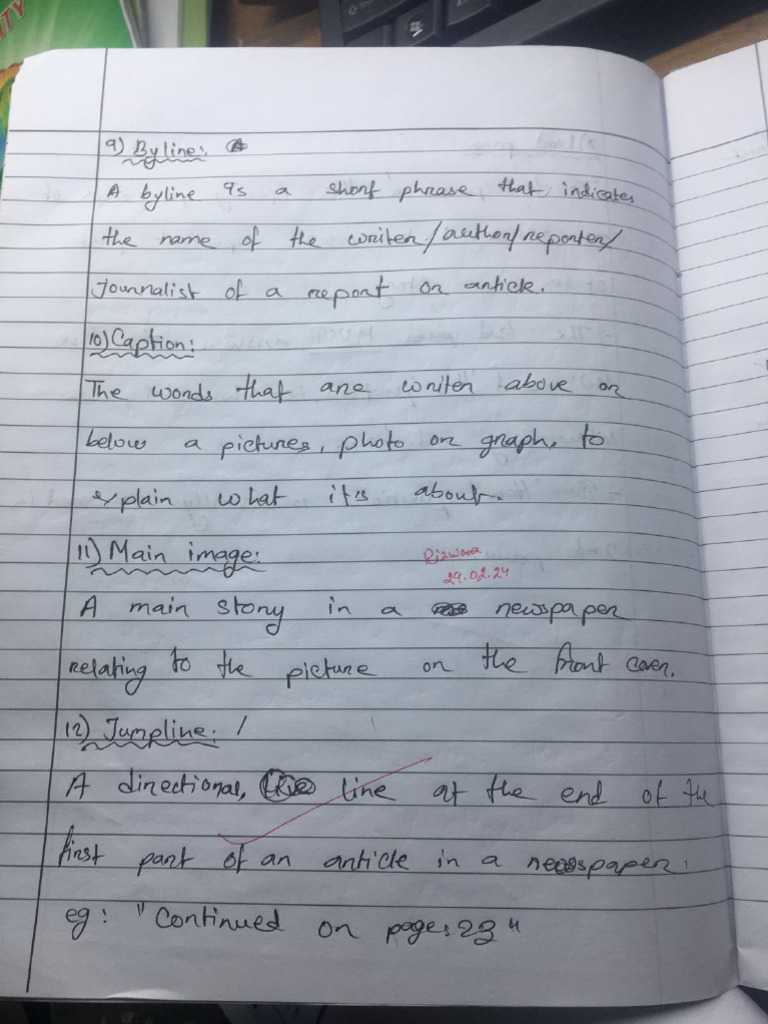 9) Byline:
A byline is a short phrase that indicates
the name of the writer/author/reporter/
journalist of a report or article.
10) Caption:
The words that are writen above or
below a pictures, photo or graph, to
explain what it's about.
11) Main image:
29.02.24
A main story in a newspaper
relating to the picture on the front cover.
12) Jumpline: /
A directional, line at the end of the
first part of an article in a newspaper.
eg: "Continued on page: 23"